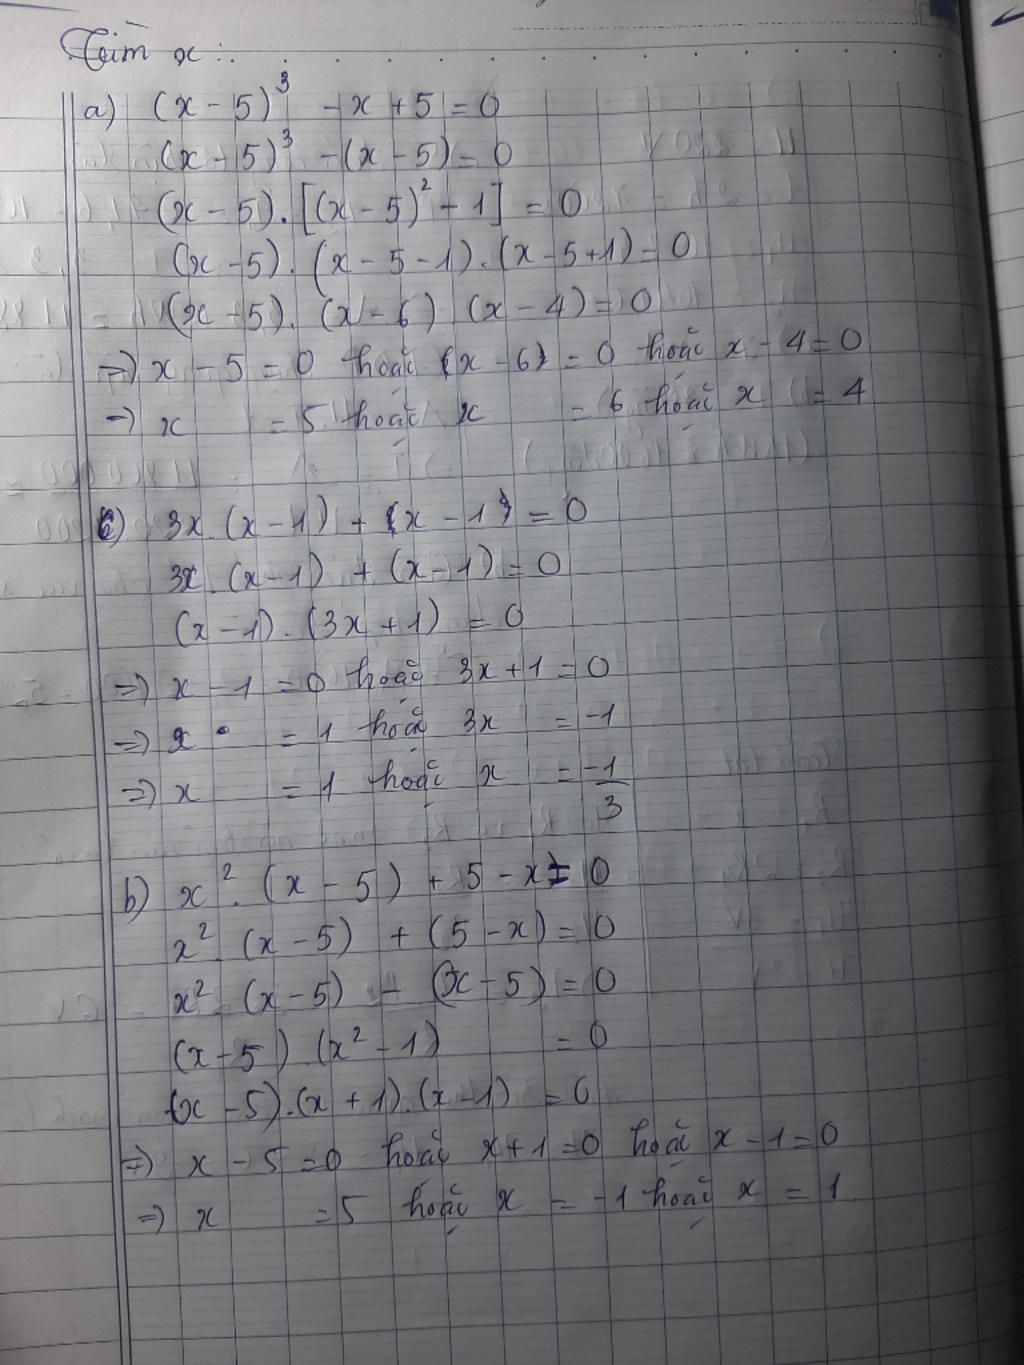 Tìm x :
a) (x - 5)³ - x + 5 = 0
(x - 5)³ - (x - 5) = 0
(x - 5) . [(x - 5)² - 1] = 0
(x - 5) . (x - 5 - 1) . (x - 5 + 1) = 0
(x - 5) . (x - 6) (x - 4) = 0
=> x - 5 = 0 hoặc (x - 6) = 0 hoặc x - 4 = 0
=> x = 5 hoặc x = 6 hoặc x = 4
c) 3x . (x - 1) + (x - 1) = 0
3x . (x - 1) + (x - 1) = 0
(x - 1) . (3x + 1) = 0
=> x - 1 = 0 hoặc 3x + 1 = 0
=> x = 1 hoặc 3x = -1
=> x = 1 hoặc x = -1/3
b) x² . (x - 5) + 5 - x = 0
x² . (x - 5) + (5 - x) = 0
x² . (x - 5) - (x - 5) = 0
(x - 5) . (x² - 1) = 0
(x - 5) . (x + 1) . (x - 1) = 0
=> x - 5 = 0 hoặc x + 1 = 0 hoặc x - 1 = 0
=> x = 5 hoặc x = -1 hoặc x = 1